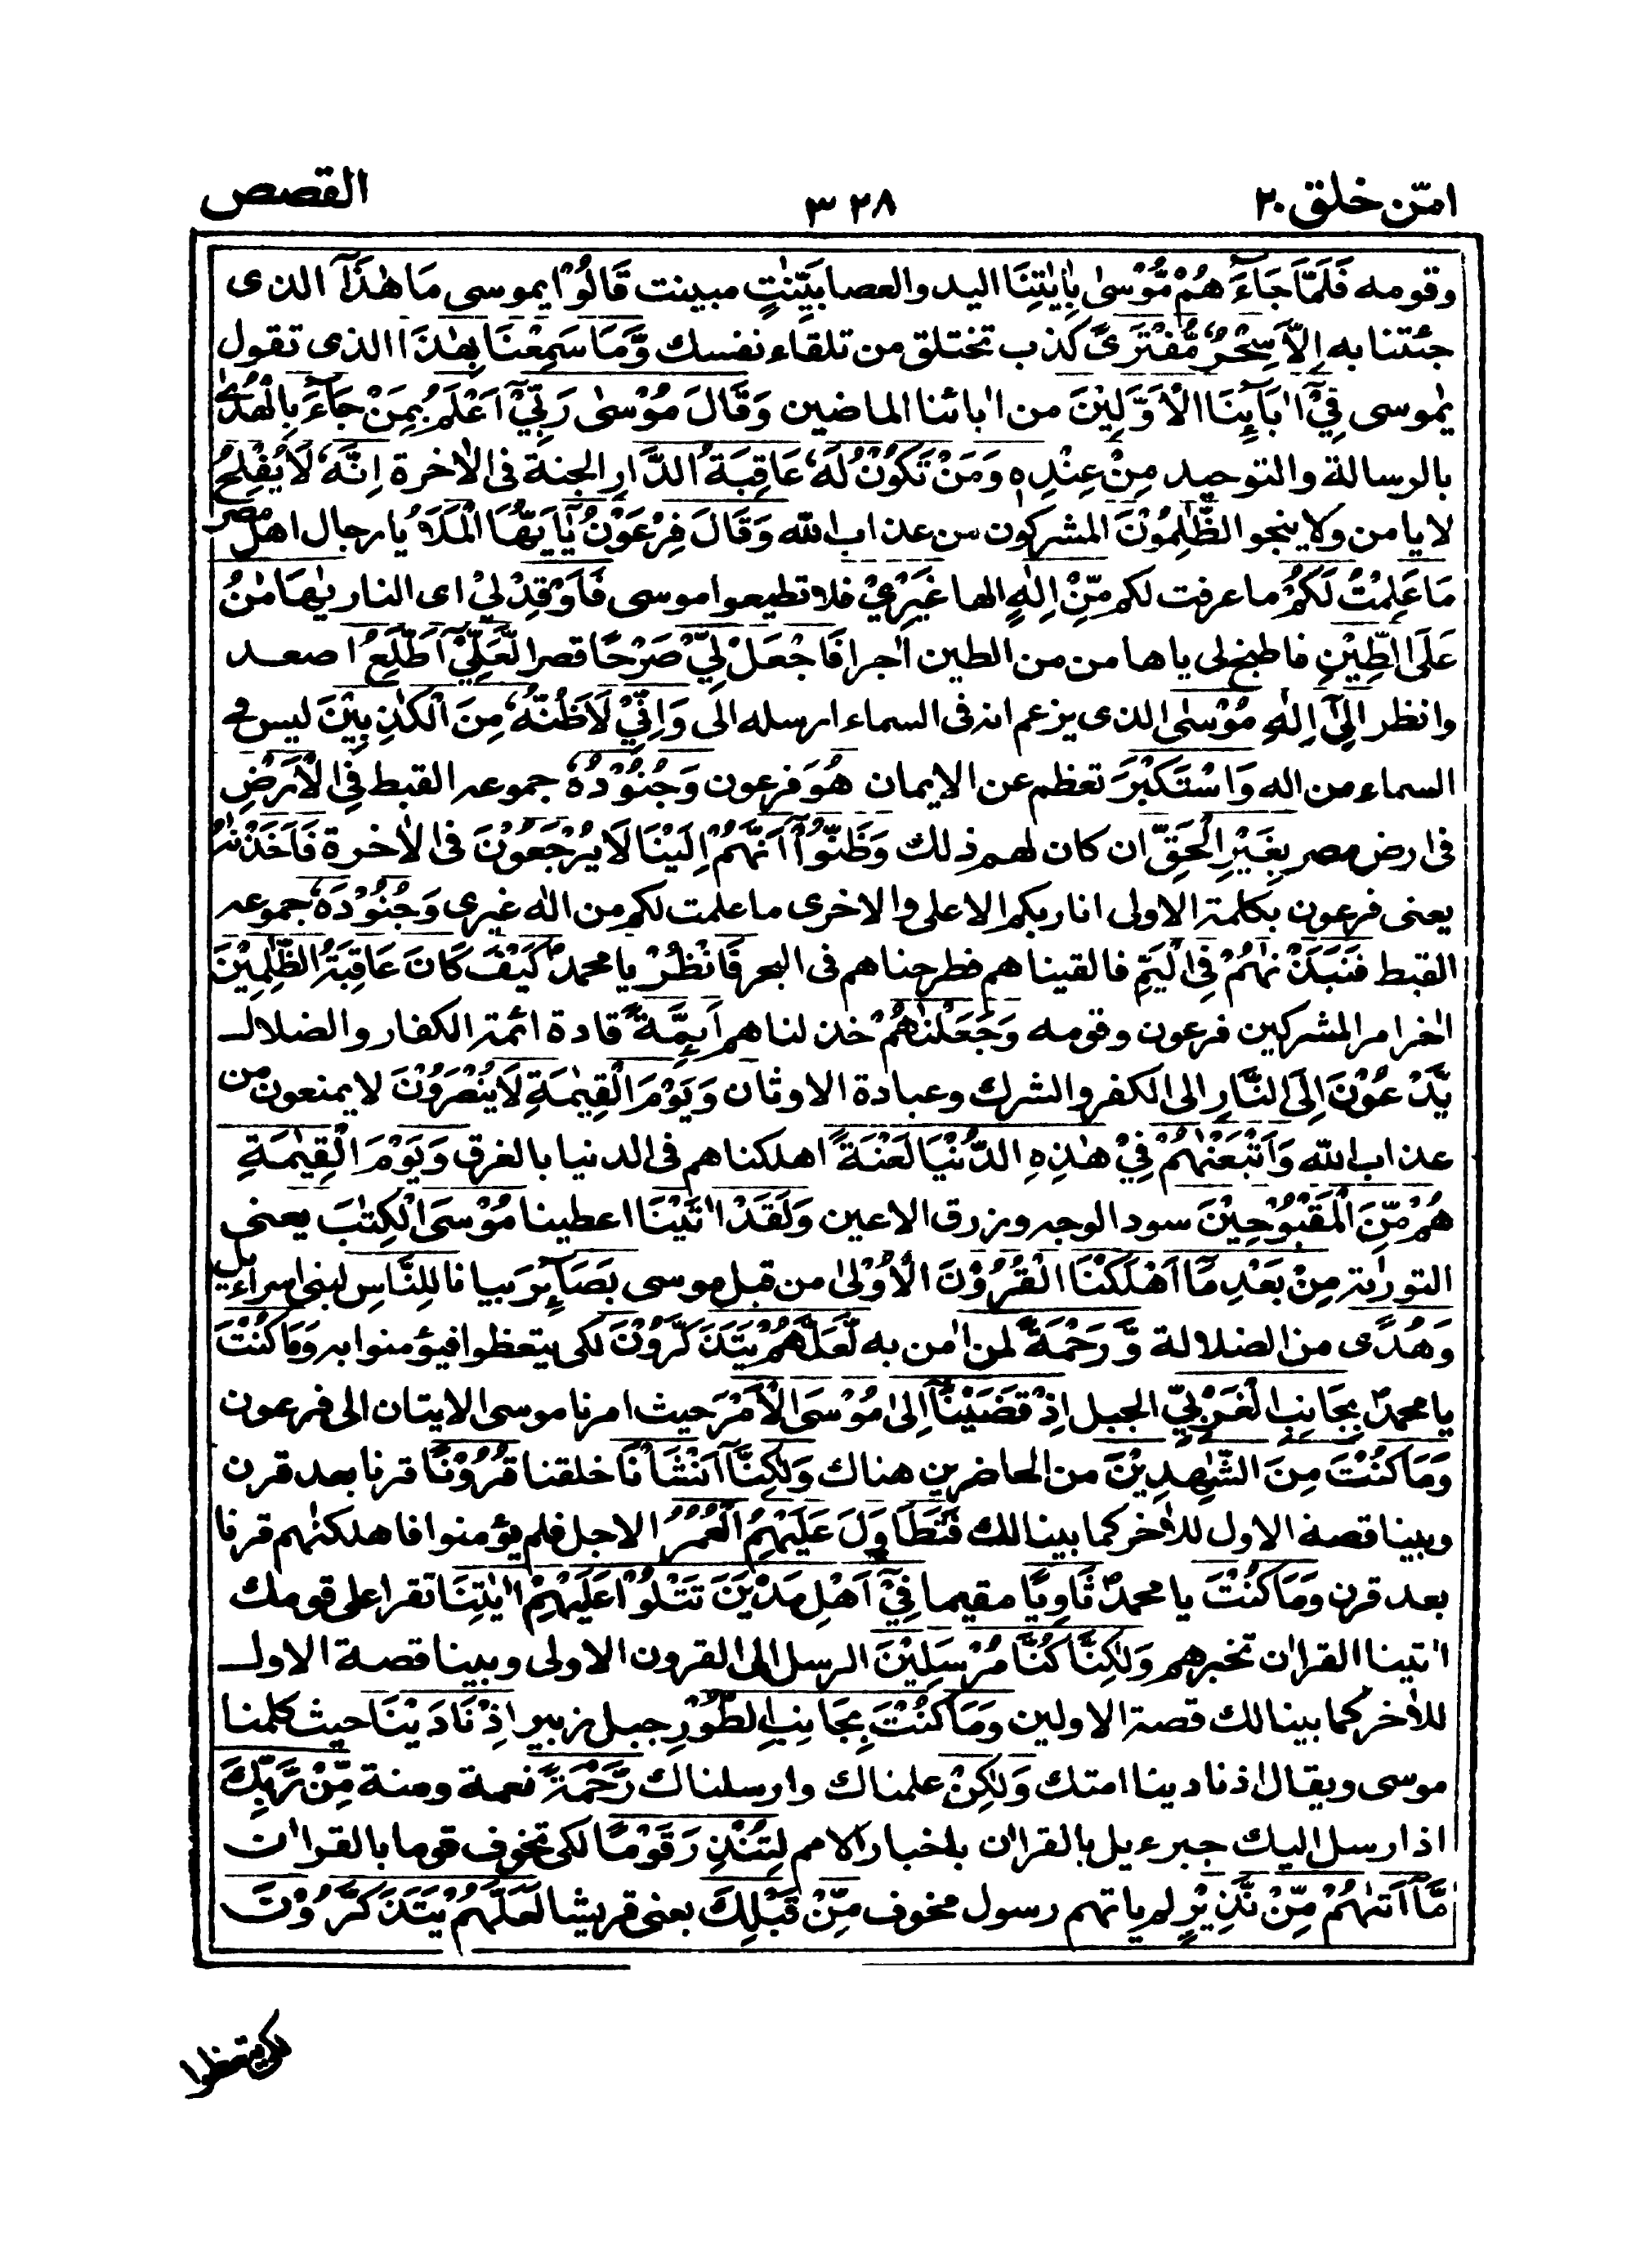 امّن خلق ٢٠
٣٢٨
القصص
وقومه فَلَمَّا جَآءَهُمْ مُّوْسٰى بِاٰيٰتِنَا اليد والعصا بَيِّنٰتٍ مبينت قَالُوْا يموسى مَا هٰذَآ الذى
جئتنا به اِلَّا سِحْرٌ مُّفْتَرًى كذب تختلق من تلقاء نفسك وَّمَا سَمِعْنَا بِهٰذَا الذى تقول
يٰموسى فِيْٓ اٰبَآئِنَا الْاَوَّلِيْنَ من اٰبائنا الماضين وَقَالَ مُوْسٰى رَبِّيْٓ اَعْلَمُ بِمَنْ جَآءَ بِالْهُدٰى
بالرسالة والتوحيد مِنْ عِنْدِهٖ وَمَنْ تَكُوْنُ لَهٗ عَاقِبَةُ الدَّارِ الجنة فى الاٰخرة اِنَّهٗ لَا يُفْلِحُ
لا يامن ولا ينجو الظّٰلِمُوْنَ المشركون من عذاب الله وَقَالَ فِرْعَوْنُ يٰٓاَيُّهَا الْمَلَاُ يا رجال اهل مصر
مَا عَلِمْتُ لَكُمْ ما عرفت لكم مِّنْ اِلٰهٍ الها غَيْرِيْ فلا تطيعوا موسى فَاَوْقِدْ لِيْ اى النار يٰهَامٰنُ
عَلَى الطِّيْنِ فاطبخ لى ياهامن من الطين اٰجرا فَاجْعَلْ لِّيْ صَرْحًا قصرا لَّعَلِّيْٓ اَطَّلِعُ اصعد
وانظر اِلٰٓى اِلٰهِ مُوْسٰى الذى يزعم انه فى السماء ارسله الى وَاِنِّيْ لَاَظُنُّهٗ مِنَ الْكٰذِبِيْنَ ليس فى
السماء من اله وَاسْتَكْبَرَ تعظم عن الايمان هُوَ فرعون وَجُنُوْدُهٗ جموعه القبط فِى الْاَرْضِ
فى ارض مصر بِغَيْرِ الْحَقِّ ان كان لهم ذلك وَظَنُّوْٓا اَنَّهُمْ اِلَيْنَا لَا يُرْجَعُوْنَ فى الاٰخرة فَاَخَذْنٰهُ
يعنى فرعون بكلمته الاولى انا ربكم الاعلى والاخرى ما علمت لكم من اله غيرى وَجُنُوْدَهٗ جموعه
القبط فَنَبَذْنٰهُمْ فِى الْيَمِّ فالقيناهم فطرحناهم فى البحر فَانْظُرْ يا محمدؐ كَيْفَ كَانَ عَاقِبَةُ الظّٰلِمِيْنَ
اٰخر امر المشركين فرعون وقومه وَجَعَلْنٰهُمْ خذلناهم اَئِمَّةً قادة ائمة الكفار والضلال
يَّدْعُوْنَ اِلَى النَّارِ الى الكفر والشرك وعبادة الاوثان وَيَوْمَ الْقِيٰمَةِ لَا يُنْصَرُوْنَ لا يمنعون من
عذاب الله وَاَتْبَعْنٰهُمْ فِيْ هٰذِهِ الدُّنْيَا لَعْنَةً اهلكناهم فى الدنيا بالغرق وَيَوْمَ الْقِيٰمَةِ
هُمْ مِّنَ الْمَقْبُوْحِيْنَ سود الوجه وزرق الاعين وَلَقَدْ اٰتَيْنَا اعطينا مُوْسَى الْكِتٰبَ يعنى
التورٰىة مِنْ بَعْدِ مَآ اَهْلَكْنَا الْقُرُوْنَ الْاُوْلٰى من قبل موسى بَصَآئِرَ بيانا لِلنَّاسِ لبنى اسراءيل
وَهُدًى من الضلالة وَّرَحْمَةً لمن اٰمن به لَّعَلَّهُمْ يَتَذَكَّرُوْنَ لكى يتعظوا فيؤمنوا به وَمَا كُنْتَ
يا محمدؐ بِجَانِبِ الْغَرْبِيِّ الجبل اِذْ قَضَيْنَآ اِلٰى مُوْسَى الْاَمْرَ حيث امرنا موسى الايتان الى فرعون
وَمَا كُنْتَ مِنَ الشّٰهِدِيْنَ من الحاضرين هناك وَلٰكِنَّآ اَنْشَاْنَا خلقنا قُرُوْنًا قرنا بعد قرن
وبينا قصة الاول للاٰخر كما بينا لك فَتَطَاوَلَ عَلَيْهِمُ الْعُمُرُ الاجل فلم يؤمنوا فاهلكنٰهم قرنا
بعد قرن وَمَا كُنْتَ يا محمدؐ ثَاوِيًا مقيما فِيْٓ اَهْلِ مَدْيَنَ تَتْلُوْا عَلَيْهِمْ اٰيٰتِنَا تقرا على قومك
اٰيتينا القراٰن تخبرهم وَلٰكِنَّا كُنَّا مُرْسِلِيْنَ الرسل الى القرون الاولى وبينا قصة الاول
للاٰخر كما بينا لك قصة الاولين وَمَا كُنْتَ بِجَانِبِ الطُّوْرِ جبل زبير اِذْ نَادَيْنَا حيث كلمنا
موسى ويقال اذ نادينا امتك وَلٰكِنْ علمناك وارسلناك رَّحْمَةً نعمة ومنة مِّنْ رَّبِّكَ
اذ ارسل اليك جبرءيل بالقراٰن باخبار الامم لِتُنْذِرَ قَوْمًا لكى تخوف قوما بالقراٰن
مَّآ اَتٰىهُمْ مِّنْ نَّذِيْرٍ لم ياتهم رسول مخوف مِّنْ قَبْلِكَ يعنى قريشا لَعَلَّهُمْ يَتَذَكَّرُوْنَ
لكى يتعظوا